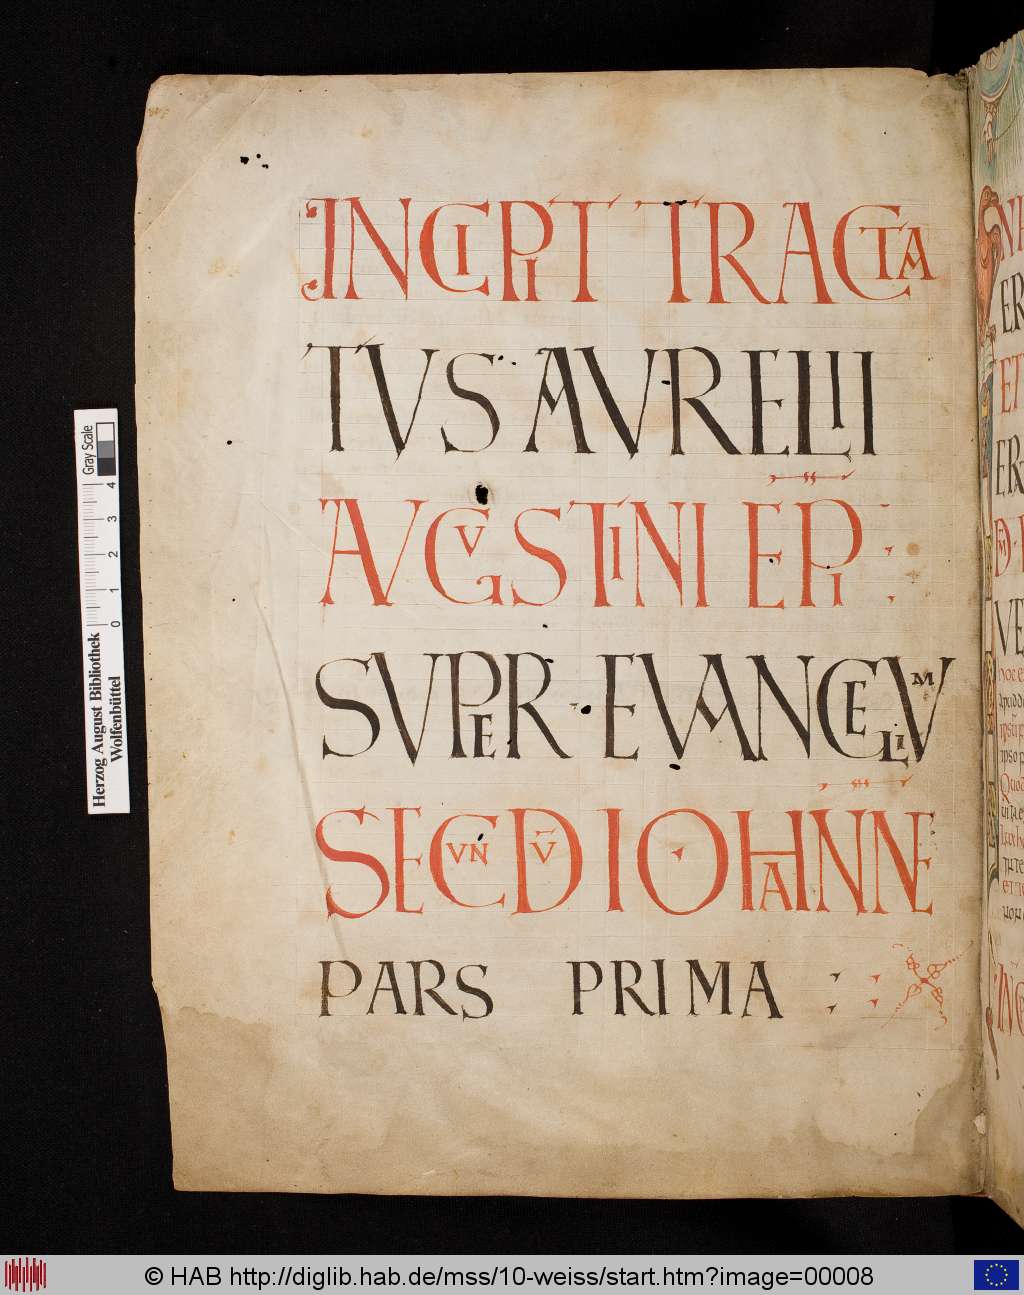 INCIPIT TRACTA
TUS AURELII
AUGUSTINI EPI
SUPER · EUANGELIUM
SECUNDŪ IOHANNE
PARS PRIMA
Herzog August Bibliothek
Wolfenbüttel
0 1 2 3 4
Gray Scale
© HAB http://diglib.hab.de/mss/10-weiss/start.htm?image=00008